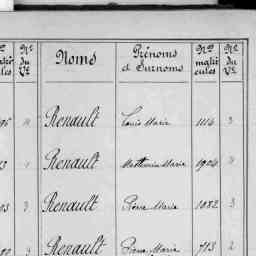 Nos Nº Noms Prénoms Nos Nº
matri du et Surnoms matri du
cules Ve cules Ve
Renault Louis Marie 1114 3
Renault Mathurin Marie 1904
3 Renault Pierre Marie 1082 3
Renault Pierre Marie 713 2